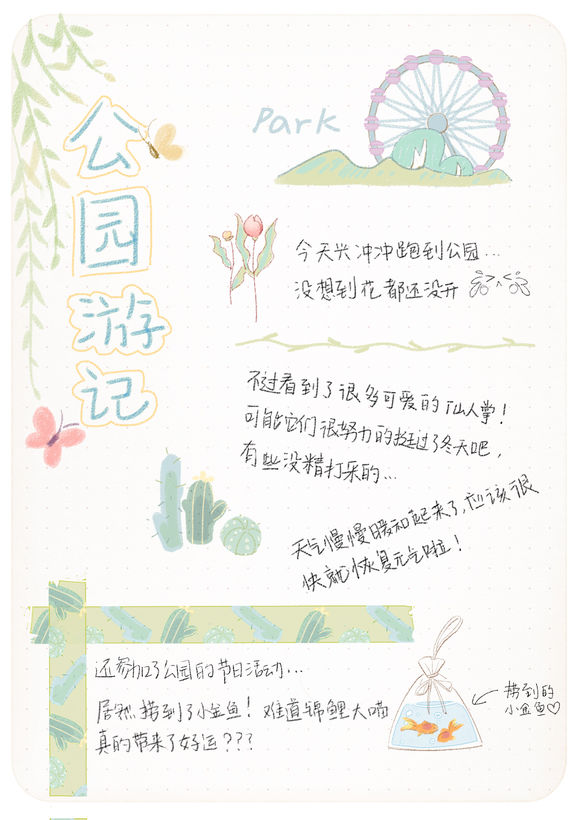 公园游记
Park
今天兴冲冲跑到公园...
没想到花都还没开
不过看到了很多可爱的仙人掌！
可能它们很努力的挺过了冬天吧，
有些没精打采的...
天气慢慢暖和起来了，应该很
快就恢复元气啦！
还参加了公园的节日活动...
居然捞到了小金鱼！难道锦鲤大喵
真的带来了好运？？？
捞到的
小金鱼♡